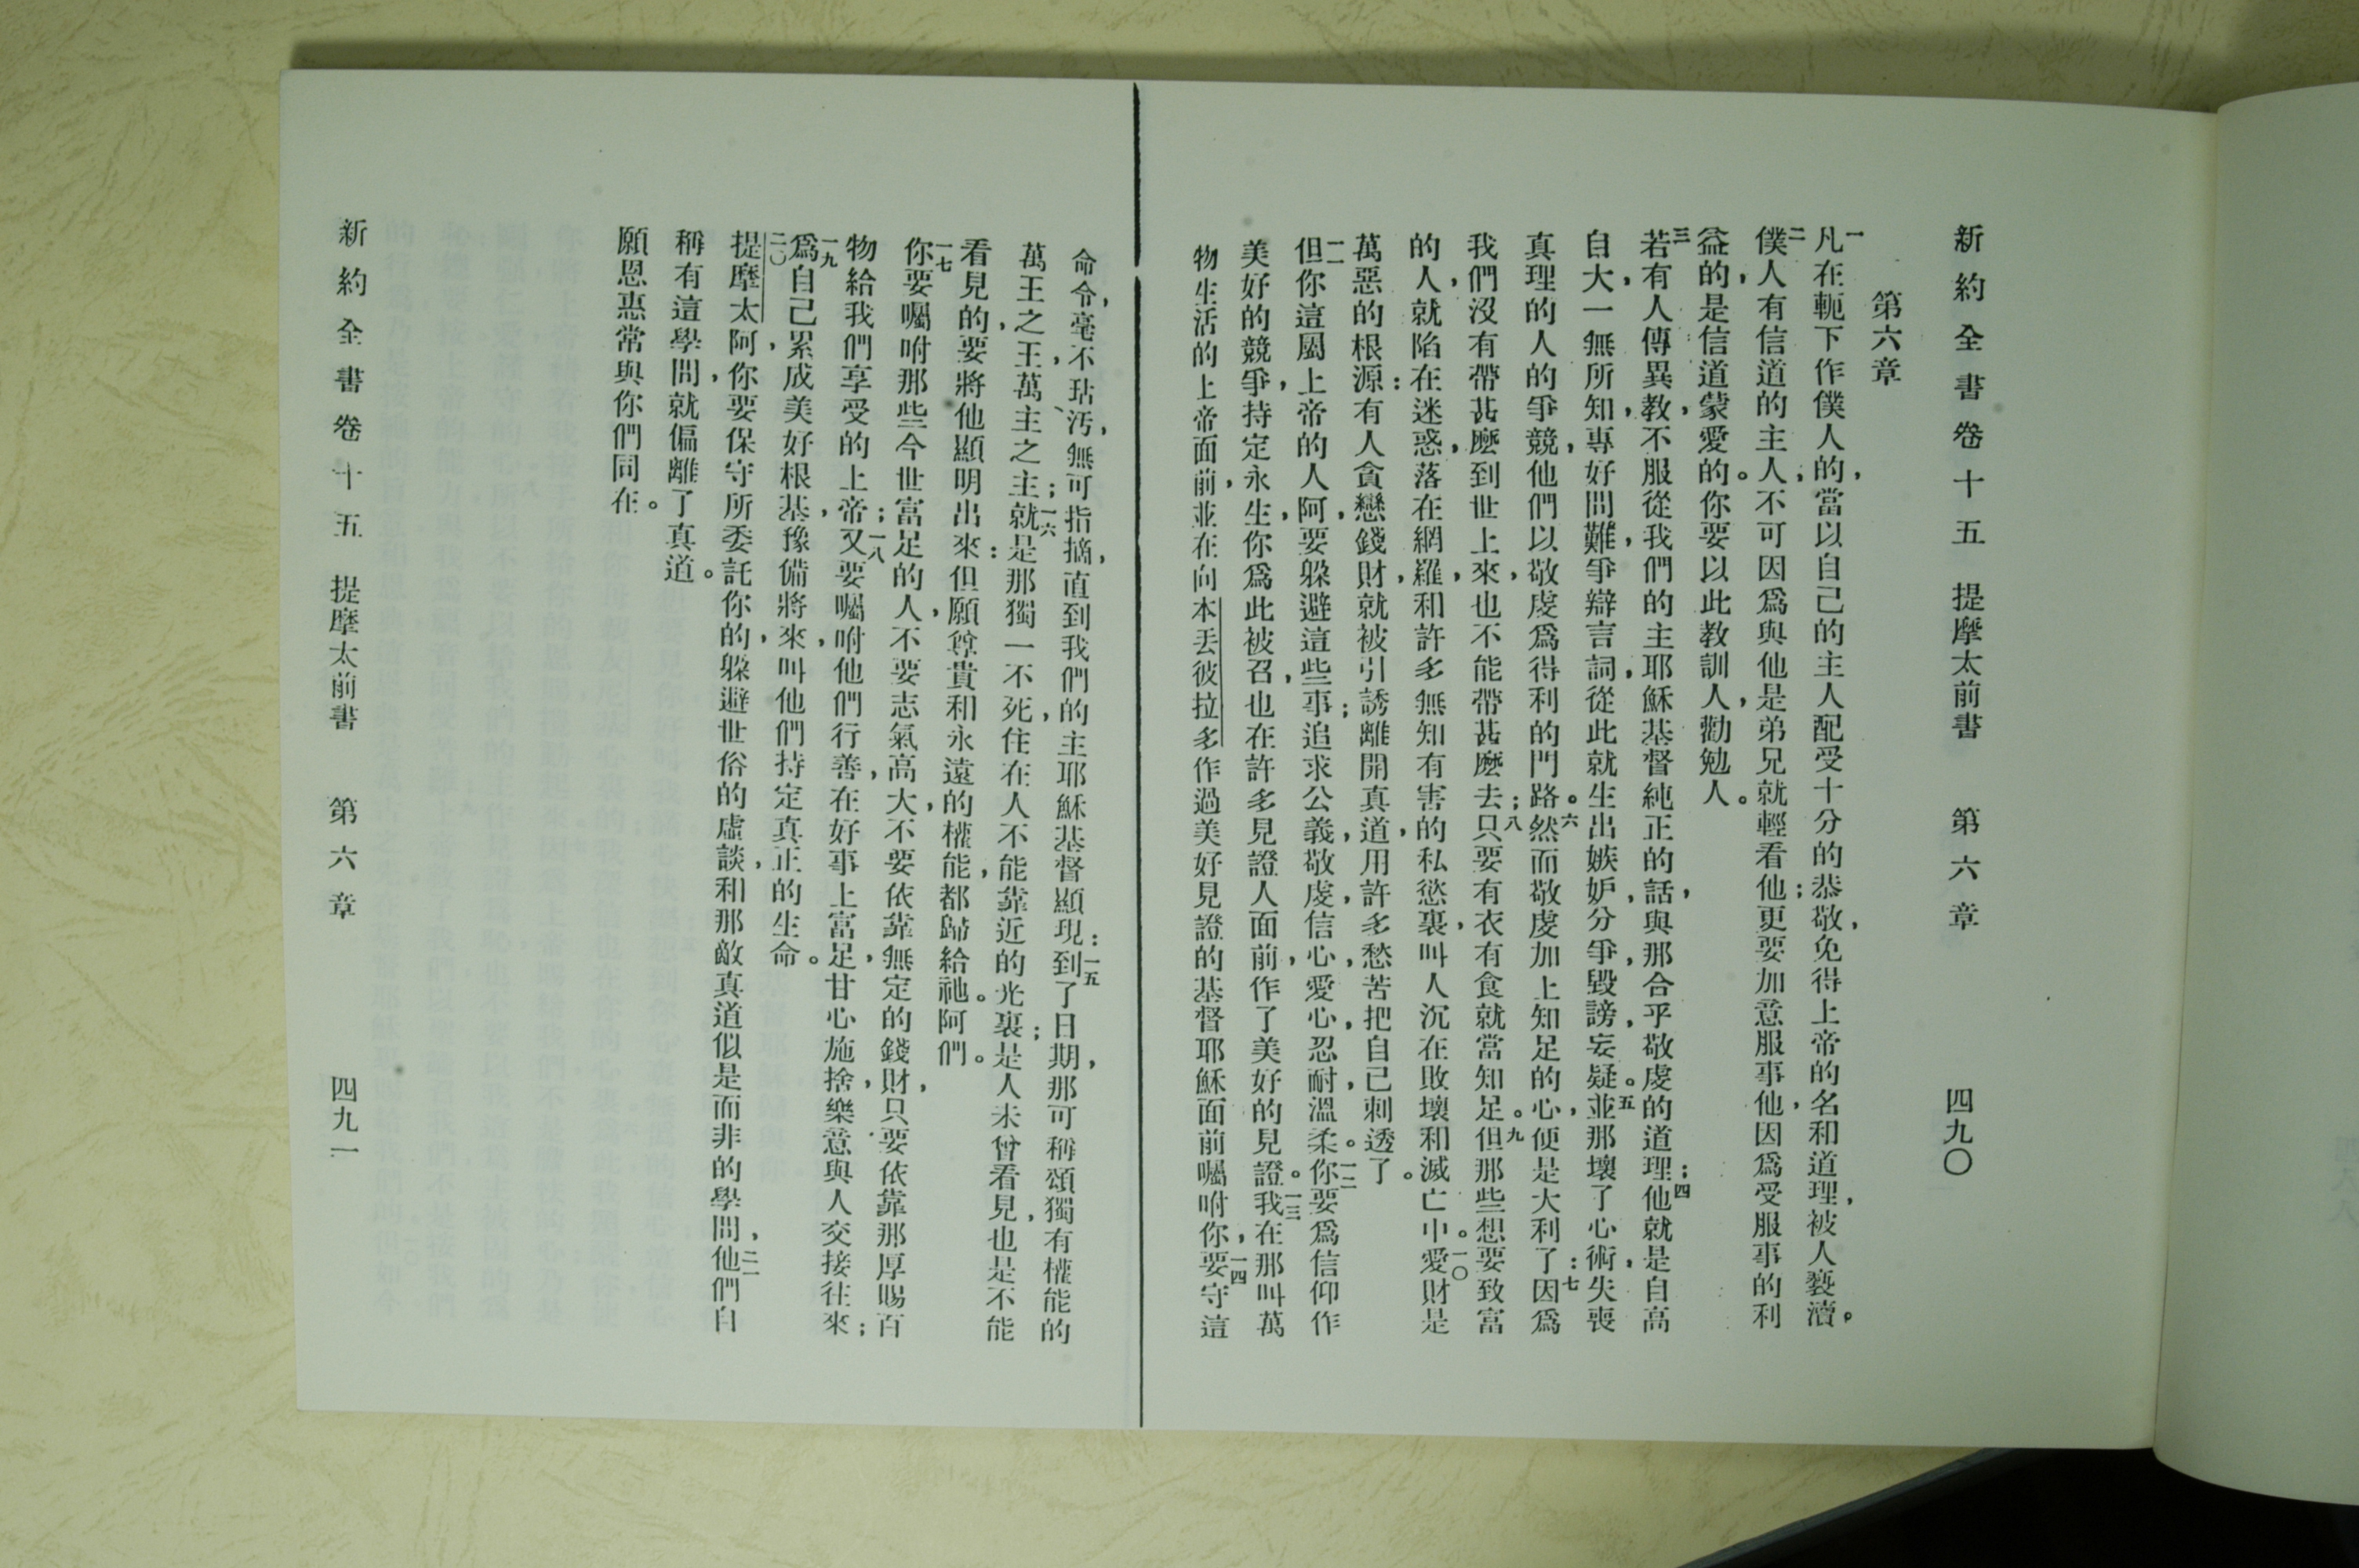 新約全書卷十五 提摩太前書 第六章 四九〇
第六章
一凡在軛下作僕人的，當以自己的主人配受十分的恭敬，免得上帝的名和道理，被人褻瀆。
二僕人有信道的主人，不可因爲與他是弟兄就輕看他；更要加意服事他，因爲受服事的利
益的，是信道蒙愛的。你要以此教訓人，勸勉人。
三若有人傳異教，不服從我們的主耶穌基督純正的話，與那合乎敬虔的道理；四他就是自高
自大，一無所知，專好問難，爭辯言詞，從此就生出嫉妒，分爭，毀謗，妄疑。五並那壞了心術，失喪
真理的人的爭競，他們以敬虔爲得利的門路。六然而敬虔加上知足的心，便是大利了：七因爲
我們沒有帶甚麼到世上來，也不能帶甚麼去；八只要有衣有食就當知足。九但那些想要致富
的人，就陷在迷惑，落在網羅，和許多無知有害的私慾裏，叫人沉在敗壞和滅亡中。一〇愛財是
萬惡的根源：有人貪戀錢財，就被引誘離開真道，用許多愁苦把自己刺透了。
一一但你這屬上帝的人阿，要躲避這些事；追求公義，敬虔，信心，愛心，忍耐，溫柔。一二你要爲信仰作
美好的競爭，持定永生，你爲此被召，也在許多見證人面前，作了美好的見證。一三我在那叫萬
物生活的上帝面前，並在向本丟彼拉多作過美好見證的基督耶穌面前囑咐你，一四要守這
命令，毫不玷污，無可指摘，直到我們的主耶穌基督顯現：一五到了日期，那可稱頌獨有權能的
萬王之王，萬主之主；一六就是那獨一不死，住在人不能靠近的光裏；是人未曾看見，也是不能
看見的，要將他顯明出來：但願尊貴和永遠的權能，都歸給祂。阿們。
一七你要囑咐那些今世富足的人，不要志氣高大，不要依靠無定的錢財，只要依靠那厚賜百
物給我們享受的上帝；一八又要囑咐他們行善，在好事上富足，甘心施捨，樂意與人交接往來；
一九爲自己累成美好根基，豫備將來，叫他們持定真正的生命。
二〇提摩太阿，你要保守所委託你的，躲避世俗的虛談，和那敵真道似是而非的學問，二一他們自
稱有這學問，就偏離了真道。
願恩惠常與你們同在。
新約全書卷十五 提摩太前書 第六章 四九一